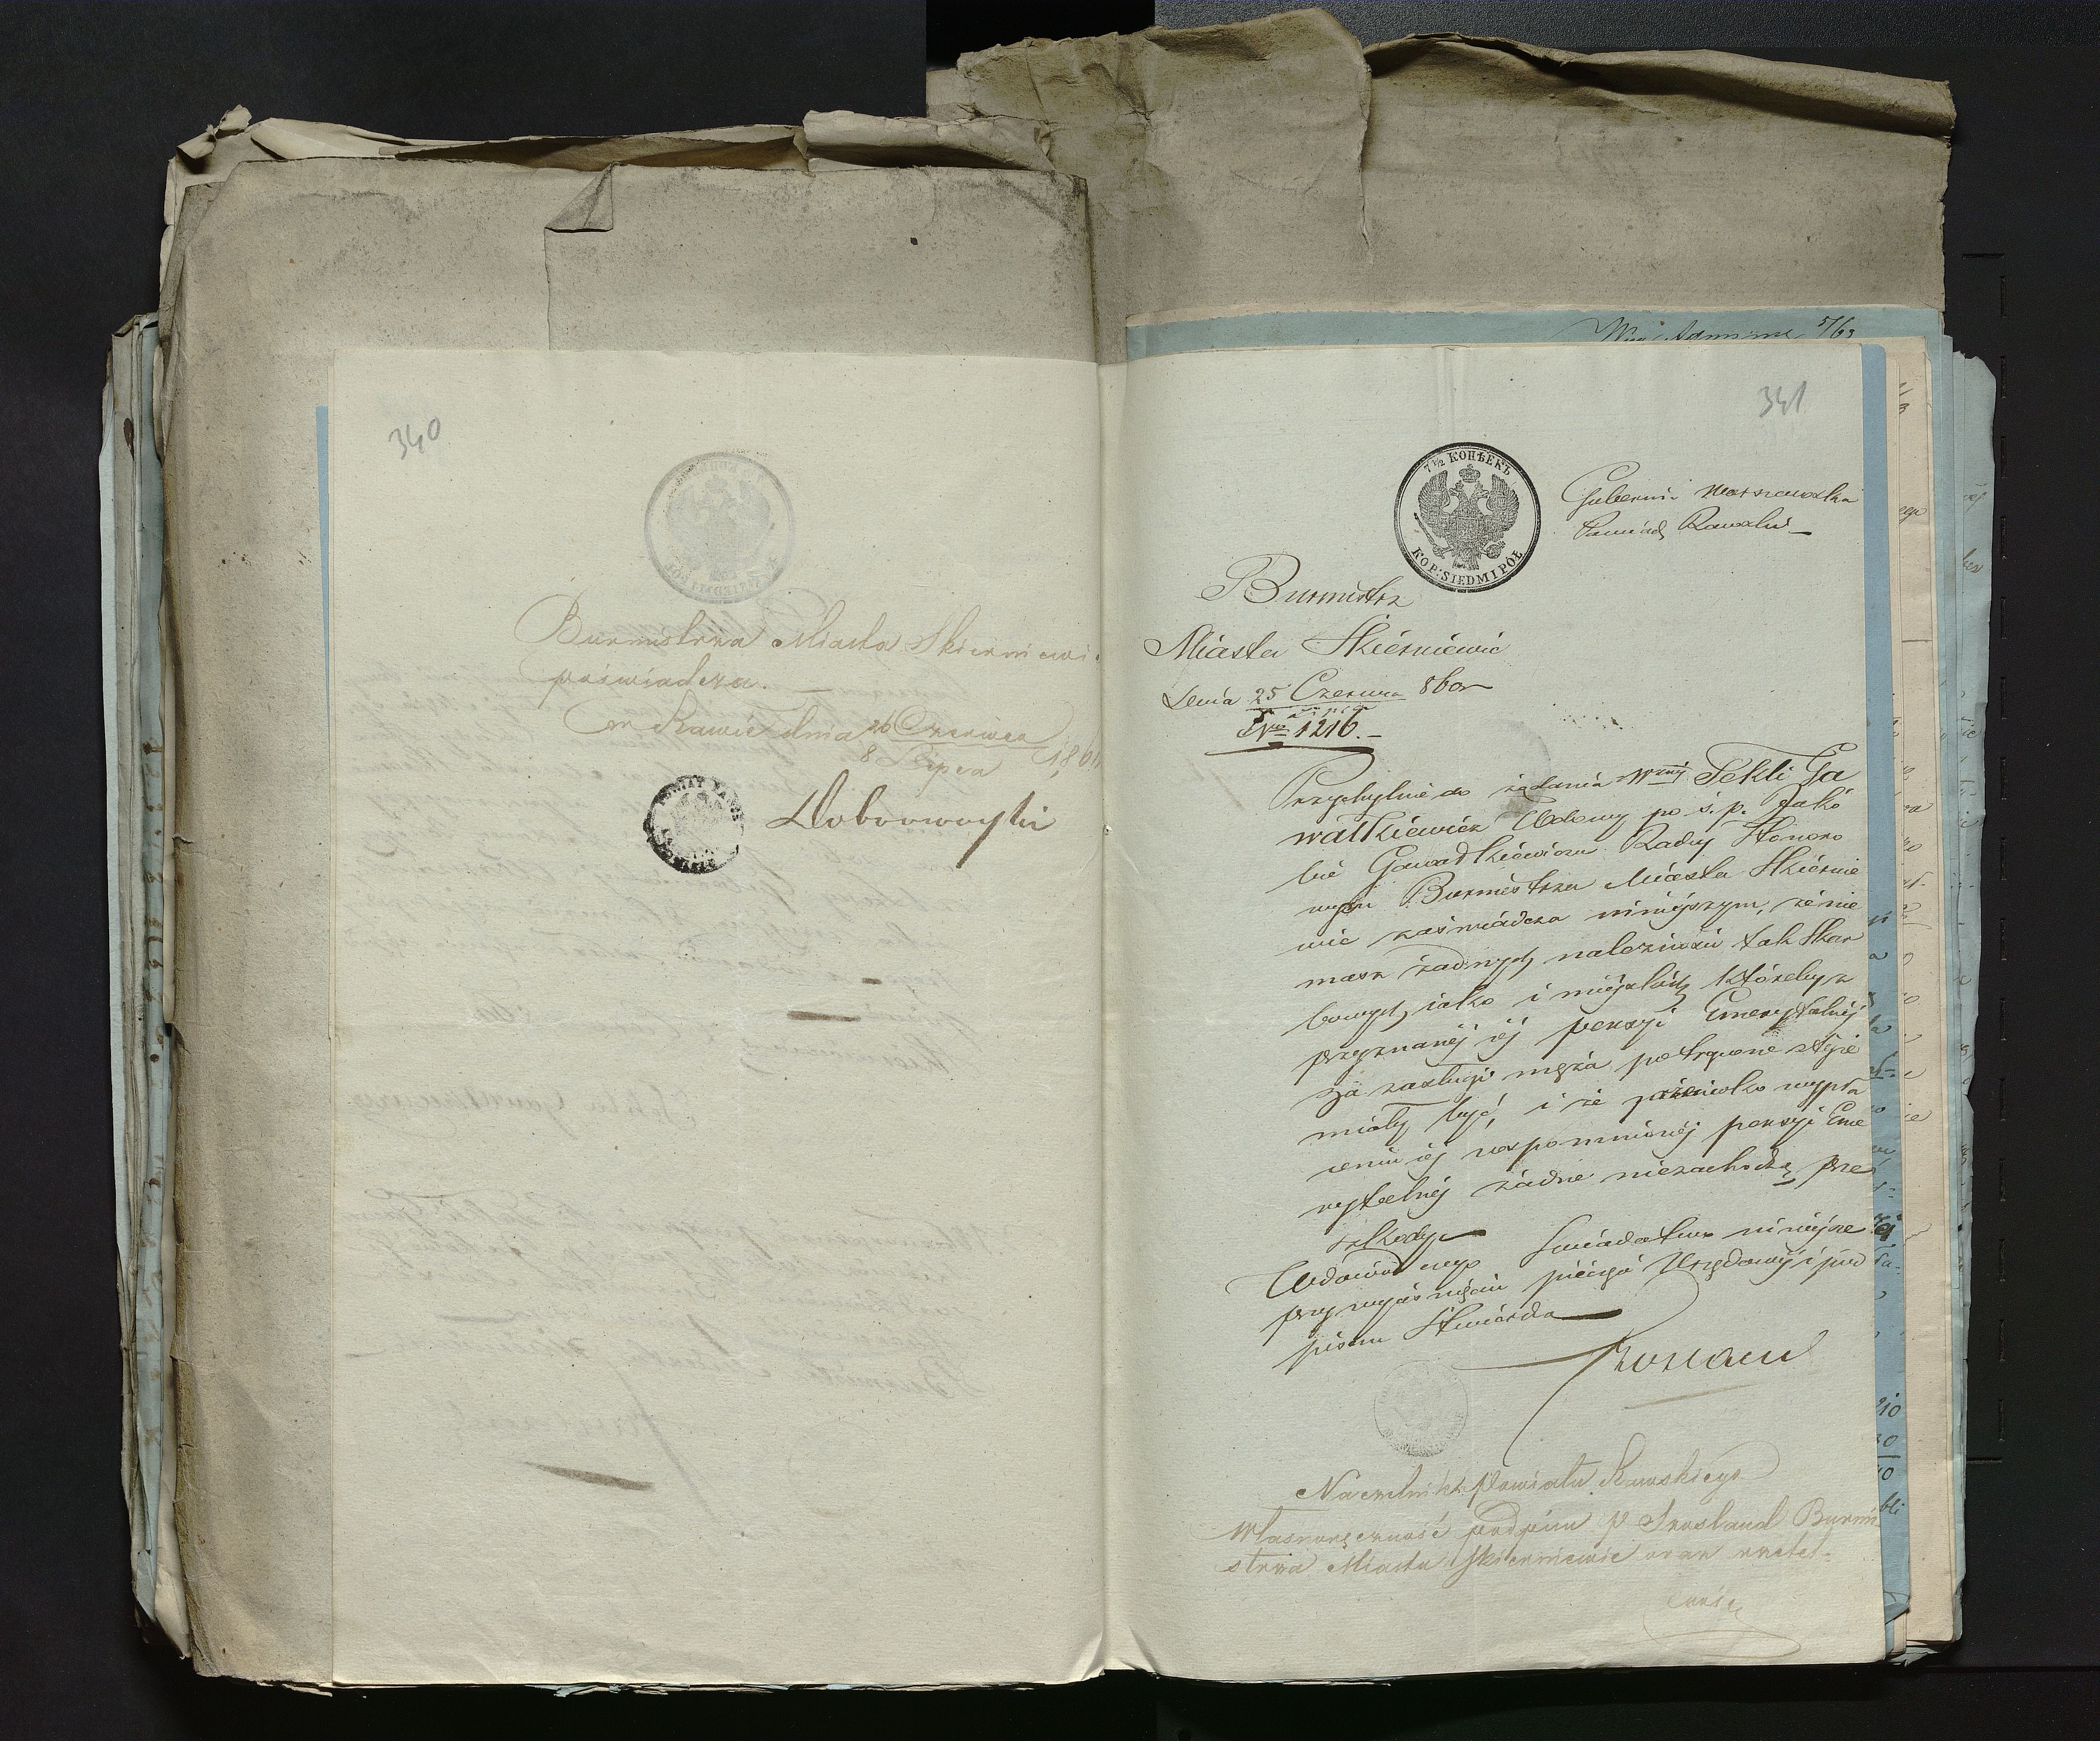 340
Burmistrza Miasta Skierniewic
poświadcza.
w Rawie dnia 26 Czerwca
8 Lipca 186
Dobrowolski
341
7½ КОПѢЕКЪ
KOP: SIEDMIPÓŁ
Gubernia Warszawska
Powiat Rawski
Burmistrz
Miasta Skierniewic
Dnia 25 Czerwca 860r
Nro 1216.
Przychylnie do żądania Wznej Tekli Ga
watkiewicz Wdowy po ś. p. Jakó
bie Gawatkiewiczu Radcy Honoro
wym Burmistrza Miasta Skiernie
wic zaświadcza niniejszym, że nie
masz żadnych należności tak Skar
bowych, jako i miejskich, któreby z
przyznanéj jéj pensyi Emerytalnéj
za zasługi męża potrącone
miały być, i że wypła
ceniu jéj wspomnionéj pensyi Eme
rytalnéj żadne niezachodzą prze
szkody
Wdowód czego Świadectwo niniejsze
przy wyciśnięciu pieczęci Urzędowéj i pod
pisem Stwierdza
Naczelnik Powiatu Rawskiego
własnoręczność podpisu P Burmi
strza Miasta Skierniewic oraz rzetel-
ność